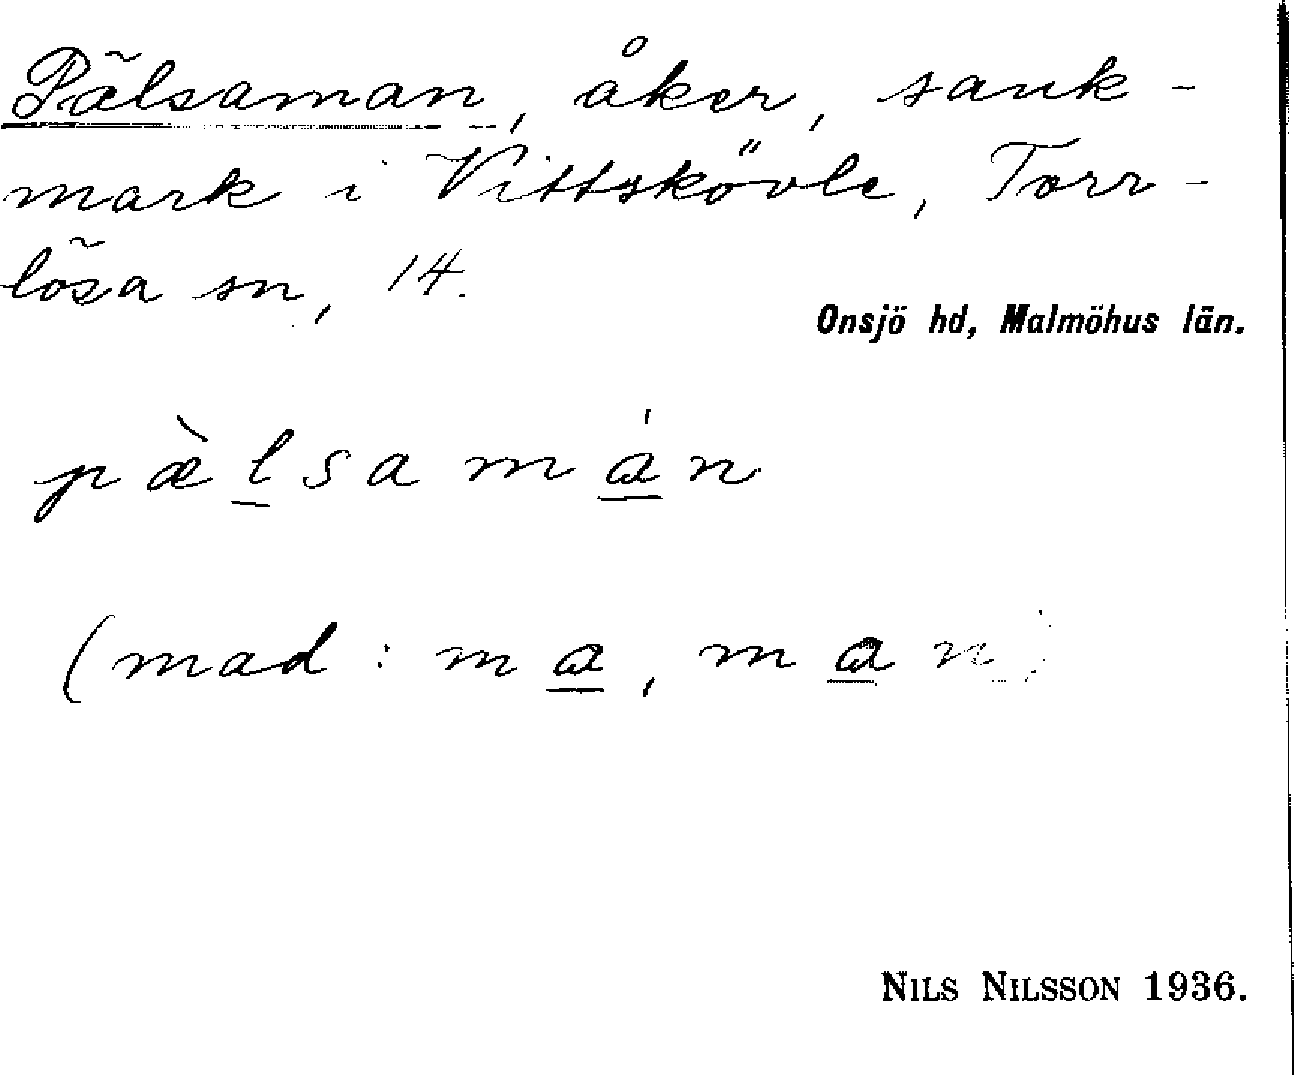 Pälsaman, åker, sank-
mark i Vittskövle, Torr-
lösa sn, 14.
Onsjö hd, Malmöhus län.
pæ̀l̠samá̠n
(mad : ma̠, ma̠n)
NILS NILSSON 1936.